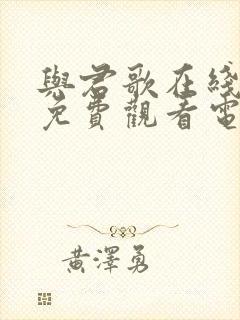 與君歌在綫
免費觀看電
黃澤勇